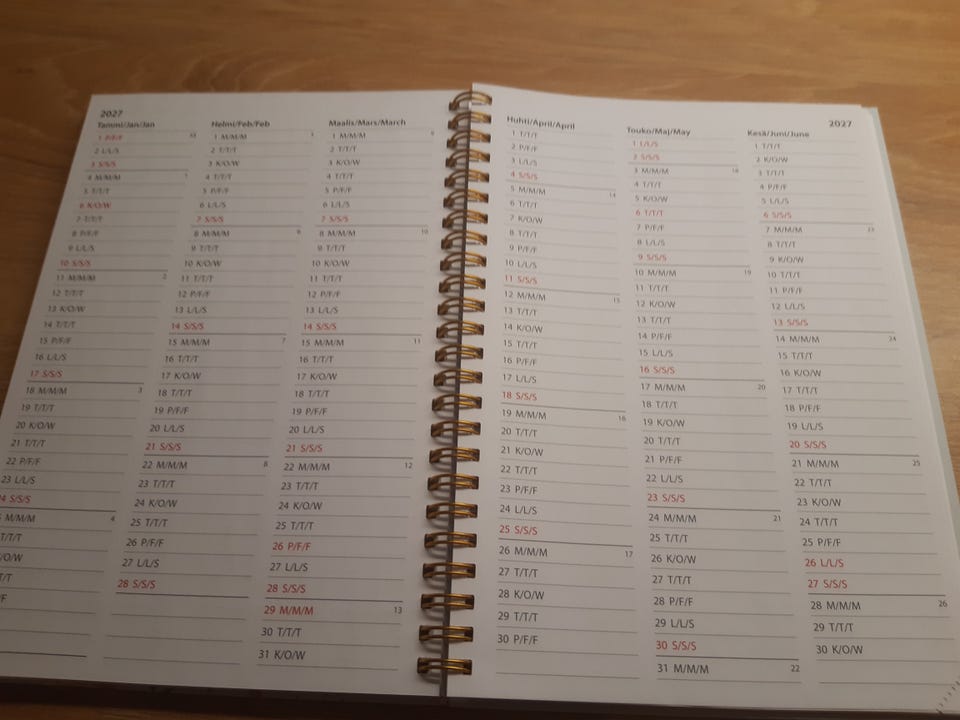 2027
Tammi/Jan/Jan
1 P/F/F 53
2 L/L/S
3 S/S/S
4 M/M/M 1
5 T/T/T
6 K/O/W
7 T/T/T
8 P/F/F
9 L/L/S
10 S/S/S
11 M/M/M 2
12 T/T/T
13 K/O/W
14 T/T/T
15 P/F/F
16 L/L/S
17 S/S/S
18 M/M/M 3
19 T/T/T
20 K/O/W
21 T/T/T
22 P/F/F
23 L/L/S
4 S/S/S
M/M/M 4
T/T/T
/O/W
T/T
F
Helmi/Feb/Feb
1 M/M/M 5
2 T/T/T
3 K/O/W
4 T/T/T
5 P/F/F
6 L/L/S
7 S/S/S
8 M/M/M 6
9 T/T/T
10 K/O/W
11 T/T/T
12 P/F/F
13 L/L/S
14 S/S/S
15 M/M/M 7
16 T/T/T
17 K/O/W
18 T/T/T
19 P/F/F
20 L/L/S
21 S/S/S
22 M/M/M 8
23 T/T/T
24 K/O/W
25 T/T/T
26 P/F/F
27 L/L/S
28 S/S/S
Maalis/Mars/March
1 M/M/M 9
2 T/T/T
3 K/O/W
4 T/T/T
5 P/F/F
6 L/L/S
7 S/S/S
8 M/M/M 10
9 T/T/T
10 K/O/W
11 T/T/T
12 P/F/F
13 L/L/S
14 S/S/S
15 M/M/M 11
16 T/T/T
17 K/O/W
18 T/T/T
19 P/F/F
20 L/L/S
21 S/S/S
22 M/M/M 12
23 T/T/T
24 K/O/W
25 T/T/T
26 P/F/F
27 L/L/S
28 S/S/S
29 M/M/M 13
30 T/T/T
31 K/O/W
Huhti/April/April
1 T/T/T
2 P/F/F
3 L/L/S
4 S/S/S
5 M/M/M 14
6 T/T/T
7 K/O/W
8 T/T/T
9 P/F/F
10 L/L/S
11 S/S/S
12 M/M/M 15
13 T/T/T
14 K/O/W
15 T/T/T
16 P/F/F
17 L/L/S
18 S/S/S
19 M/M/M 16
20 T/T/T
21 K/O/W
22 T/T/T
23 P/F/F
24 L/L/S
25 S/S/S
26 M/M/M 17
27 T/T/T
28 K/O/W
29 T/T/T
30 P/F/F
Touko/Maj/May
1 L/L/S
2 S/S/S
3 M/M/M 18
4 T/T/T
5 K/O/W
6 T/T/T
7 P/F/F
8 L/L/S
9 S/S/S
10 M/M/M 19
11 T/T/T
12 K/O/W
13 T/T/T
14 P/F/F
15 L/L/S
16 S/S/S
17 M/M/M 20
18 T/T/T
19 K/O/W
20 T/T/T
21 P/F/F
22 L/L/S
23 S/S/S
24 M/M/M 21
25 T/T/T
26 K/O/W
27 T/T/T
28 P/F/F
29 L/L/S
30 S/S/S
31 M/M/M 22
2027
Kesä/Juni/June
1 T/T/T
2 K/O/W
3 T/T/T
4 P/F/F
5 L/L/S
6 S/S/S
7 M/M/M 23
8 T/T/T
9 K/O/W
10 T/T/T
11 P/F/F
12 L/L/S
13 S/S/S
14 M/M/M 24
15 T/T/T
16 K/O/W
17 T/T/T
18 P/F/F
19 L/L/S
20 S/S/S
21 M/M/M 25
22 T/T/T
23 K/O/W
24 T/T/T
25 P/F/F
26 L/L/S
27 S/S/S
28 M/M/M 26
29 T/T/T
30 K/O/W